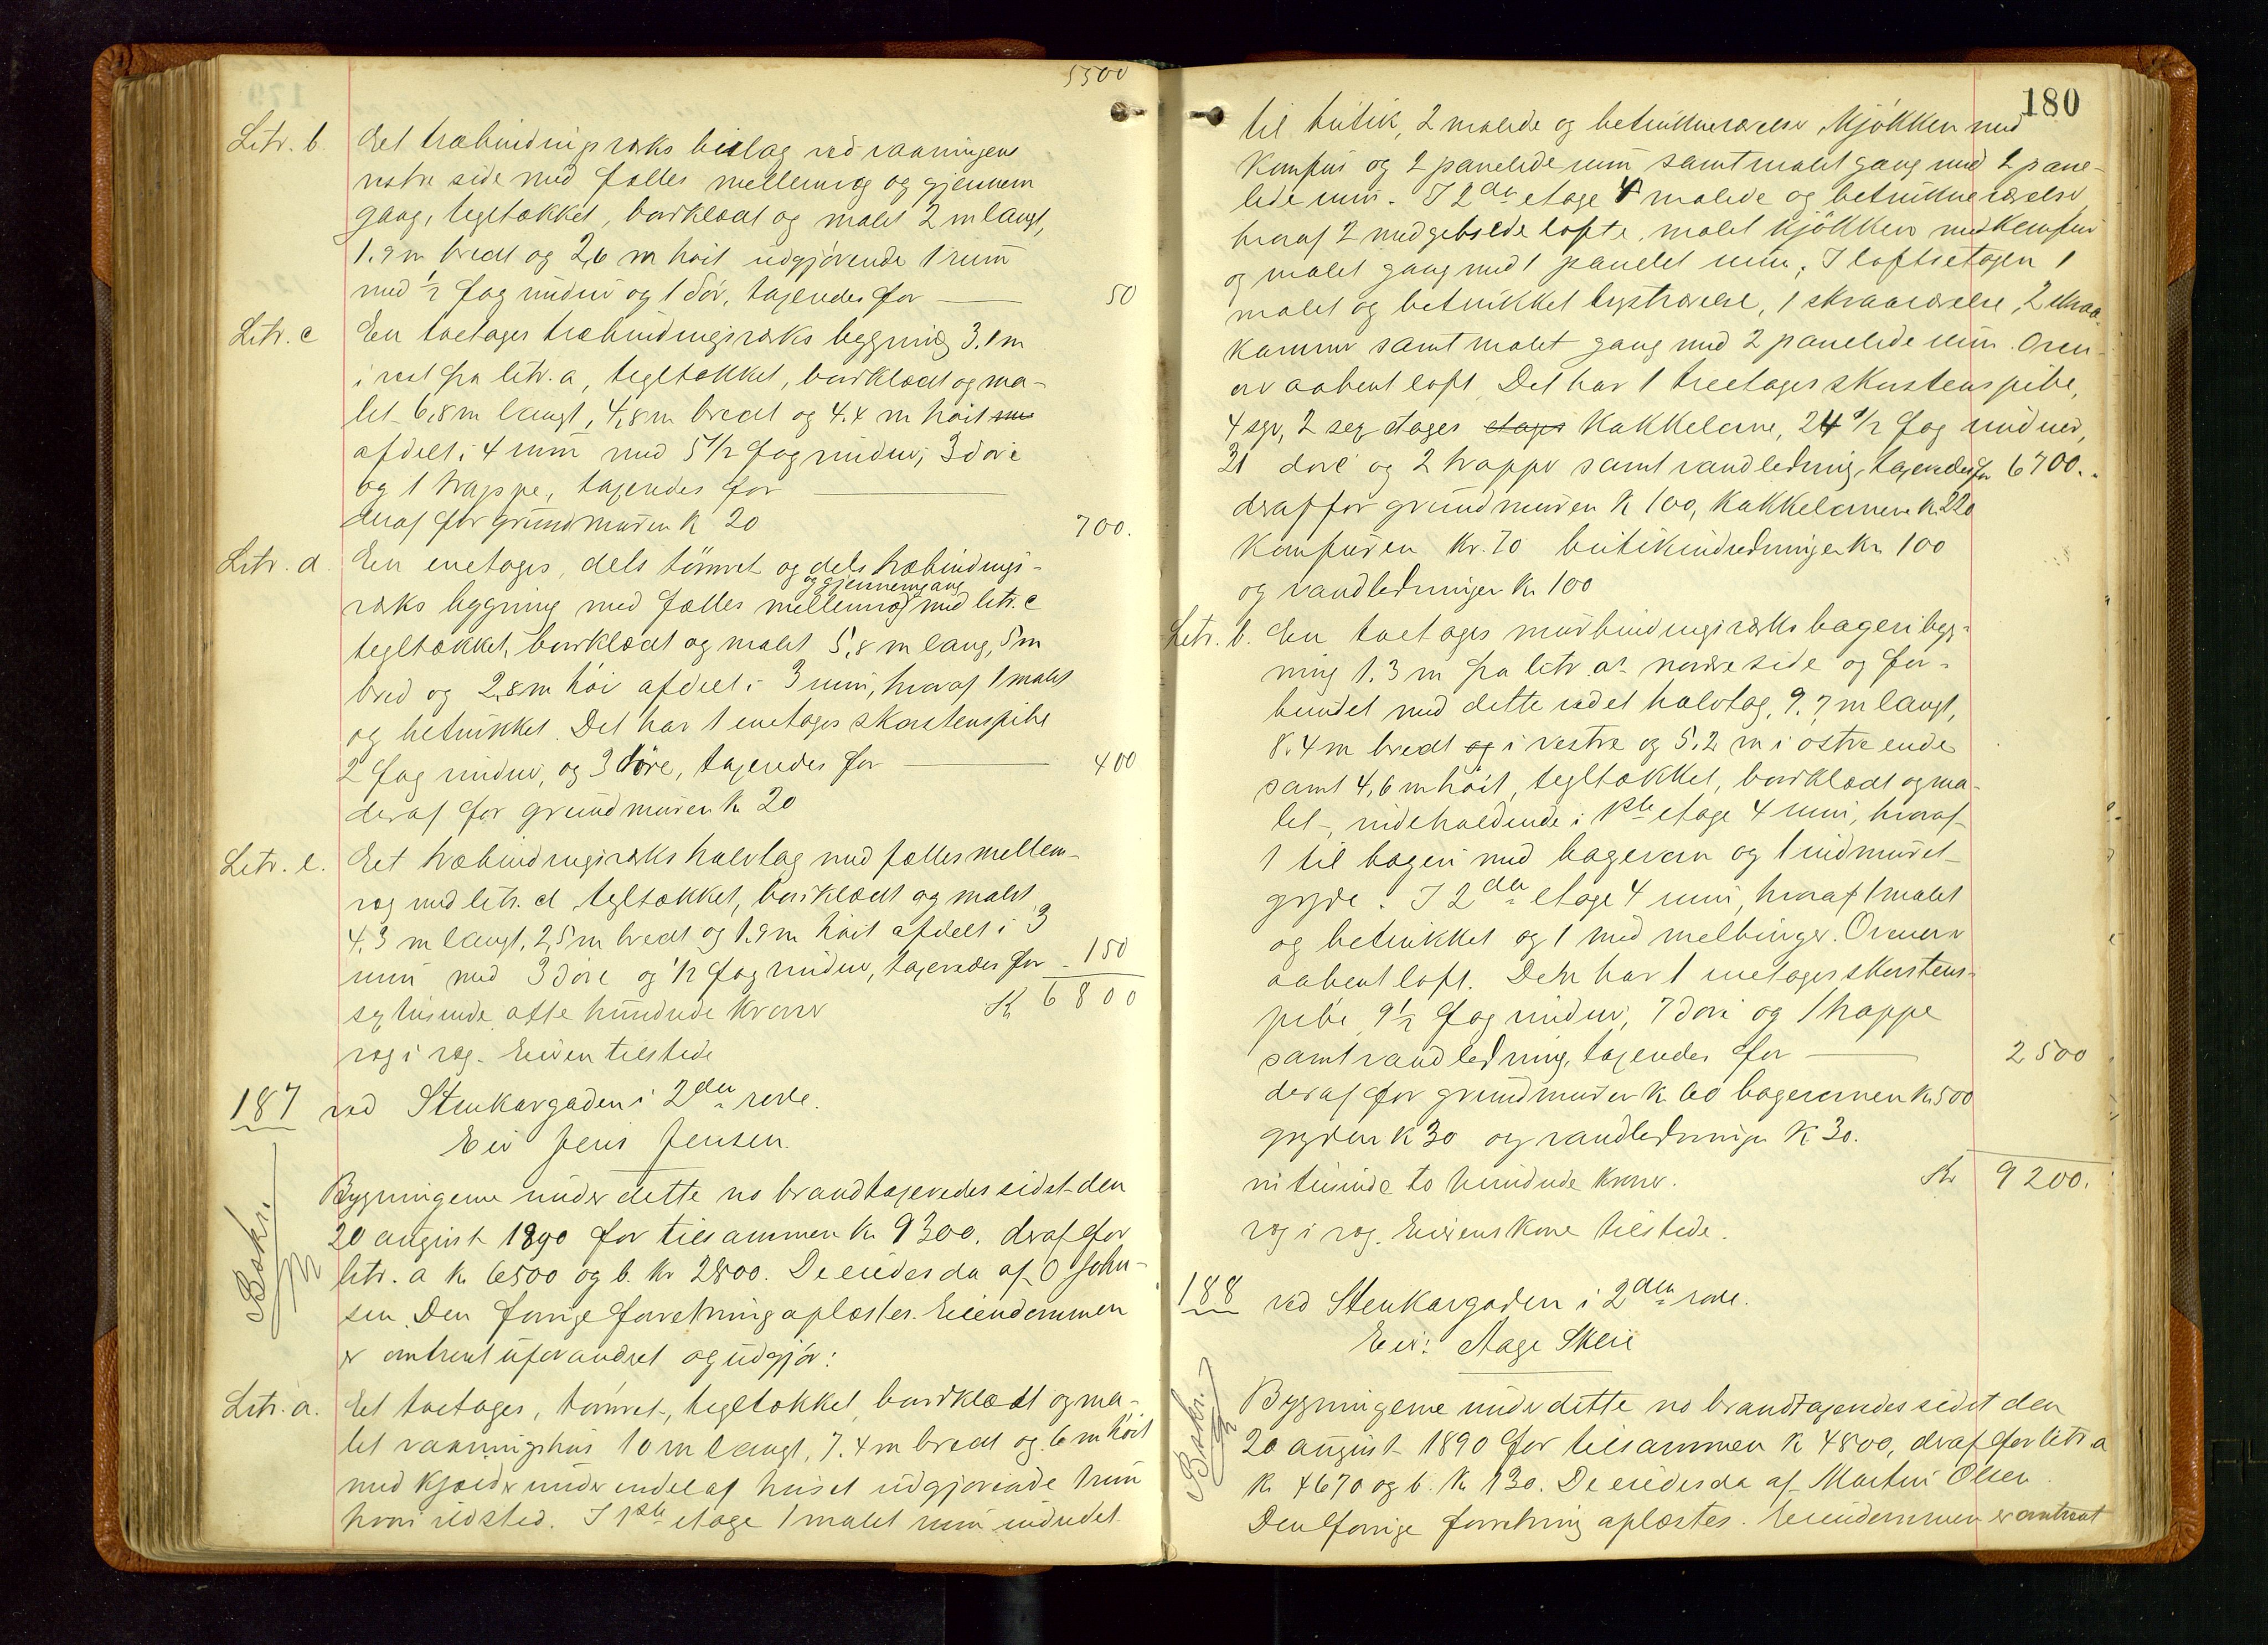 5500
Litr. b. Et træbindingsværks bislag ved vaaningens
vestre side med fælles mellemvæg og gjennem
gang, tegltækket, bordklædt og malet 2 m langt,
1.9 m bredt og 2,6 m høit udgjørende 1 rum
med 1/2 fag vinduer og 1 dør, taxeredes for — 50
Litr. c En toetages træbindingsværks bygning 3.1 m
i vest fra litr. a, tegltækket, bordklædt og ma-
let 6,8 m langt, 4,8 m bredt og 4.4 m høit
afdelt i 4 rum med 5 1/2 fag vinduer, 3 døre
og 1 trappe, taxeredes for —
deraf for grundmuren K 20 700.
Litr. d. En enetages, dels tømret og dels træbindings-
og gjennemgang
værks bygning med fælles mellemvæg med litr. c
tegltækket, bordklædt og malet 5,8 m lang, 5 m
bred og 2,8 m høi afdelt i 3 rum, hvoraf 1 malet
og betrukket. Det har 1 enetages skorstenspibe
2 fag vinduer, og 3 døre, taxeredes for — 400
deraf for grundmuren K 20
Litr. e. Et træbindingsværks halvtag med fælles mellem-
væg med litr. d tegltækket, bordklædt og malet
4.3 m langt, 2,5 m bredt og 1.9 m høit afdelt i 3
rum med 3 døre og 1/2 fag vinduer, taxeredes for - 150
sex tusinde otte hundrede kroner K 6800
væg i væg. Eieren tilstede
187 ved Stenkargaden i 2den rode.
Eier Jens Jensen.
Bygningerne under dette no brandtaxeredes sidst den
20 august 1890 for tilsammen K 9300. deraf for
litr. a K 6500 og b. Kr 2800. De eiedes da af O John-
sen. Den forrige forretning oplæstes. Eiendommen
er omtrent uforandret og udgjør:
Litr. a. Et toetages, tømret, tegltækket, bordklædt og ma-
let vaaningshus 10 m langt, 7.4 m bredt og 6 m høit
med kjælder under endel af huset udgjørende 1 rum
hvori ildsted. I 1ste etage 1 malet rum indredet
180
til butik, 2 malede og betrukne værelser, kjøkken med
komfur og 2 panelede rum samt malet gang med 2 pane-
lede rum. I 2den etage 4 malede og betrukne værelser
hvoraf 2 med gebsede lofte, malet kjøkken med komfur
og malet gang med 1 panelet rum. I loftsetagen 1
malet og betrukket kvistværelse, 1 skraaværelse, 2 skraa-
kammer samt malet gang med 2 panelede rum. Oven-
over aabent loft. Det har 1 treetages skorstenspibe,
4 sgv, 2 sex etages etages kakkelovne, 24 1/2 fag vinduer,
31 døre og 2 trapper samt vandledning, taxeredes for 6700.
deraf for grundmuren K 100, kakkelovnene Kr 220
komfuren Kr. 70 butikindredningen Kr 100
og vandledningen Kr 100
Litr. b. En toetages murbindingsværks bageribyg-
ning 1.3 m fra litr. a's nordre side og for-
bundet med dette ved et halvtag, 9.7 m langt,
8.4 m bredt og i vestre og 5.2 m i østre ende
samt 4,6 m høit, tegltækket, bordklædt og ma-
let, indeholdende i 1ste etage 4 rum, hvoraf
1 til bageri med bagerovn og 1 indmuret
gryde. I 2den etage 4 rum, hvoraf 1 malet
og betrukket og 1 med melbinger. Ovenover
aabent loft. Den har 1 enetages skorstens-
pibe, 9 1/2 fag vinduer, 7 døre og 1 trappe
samt vandledning, taxeredes for — 2500
deraf for grundmuren K 60 bagerovnen K 500
gryden K 30 og vandledningen K 30.
ni tusinde to hundrede kroner. Kr 9200.
væg i væg. Eierens kone tilstede.
188 ved Stenkargaden i 2den rode.
Eier: Aage Skeie
Bygningerne under dette no brandtaxeredes sidst den
20 august 1890 for tilsammen K 4800, deraf for litr a
K 4670 og b. K 130. De eiedes da af Martin Olsen
Den forrige forretning oplæstes. Eiendommen er omtrent